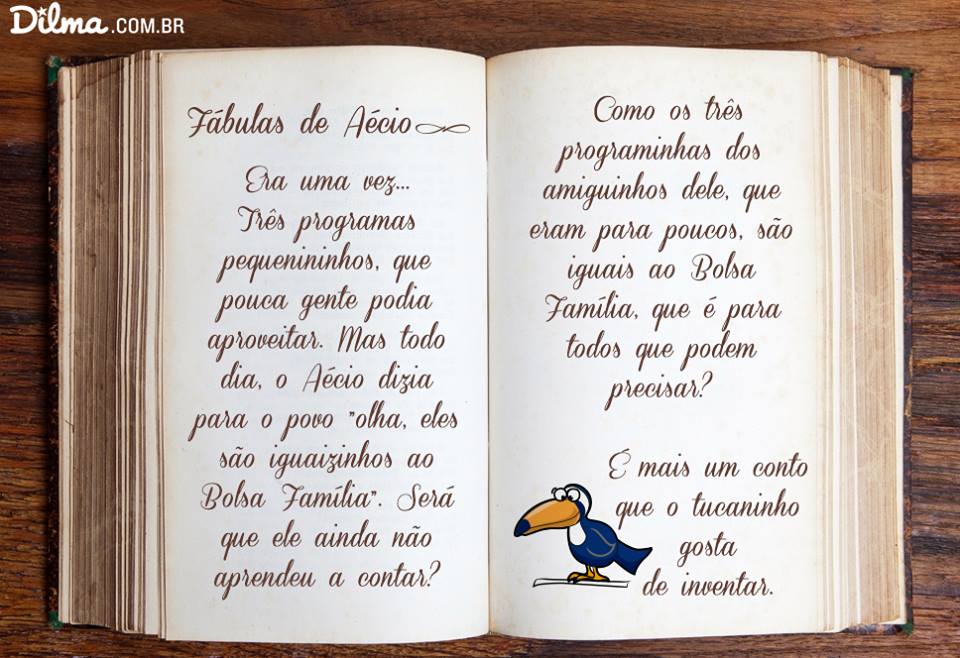 Dilma.COM.BR
Fábulas de Aécio
Era uma vez...
Três programas
pequenininhos, que
pouca gente podia
aproveitar. Mas todo
dia, o Aécio dizia
para o povo "olha, eles
são iguaizinhos ao
Bolsa Família". Será
que ele ainda não
aprendeu a contar?
Como os três
programinhas dos
amiguinhos dele, que
eram para poucos, são
iguais ao Bolsa
Família, que é para
todos que podem
precisar?
É mais um conto
que o tucaninho
gosta
de inventar.